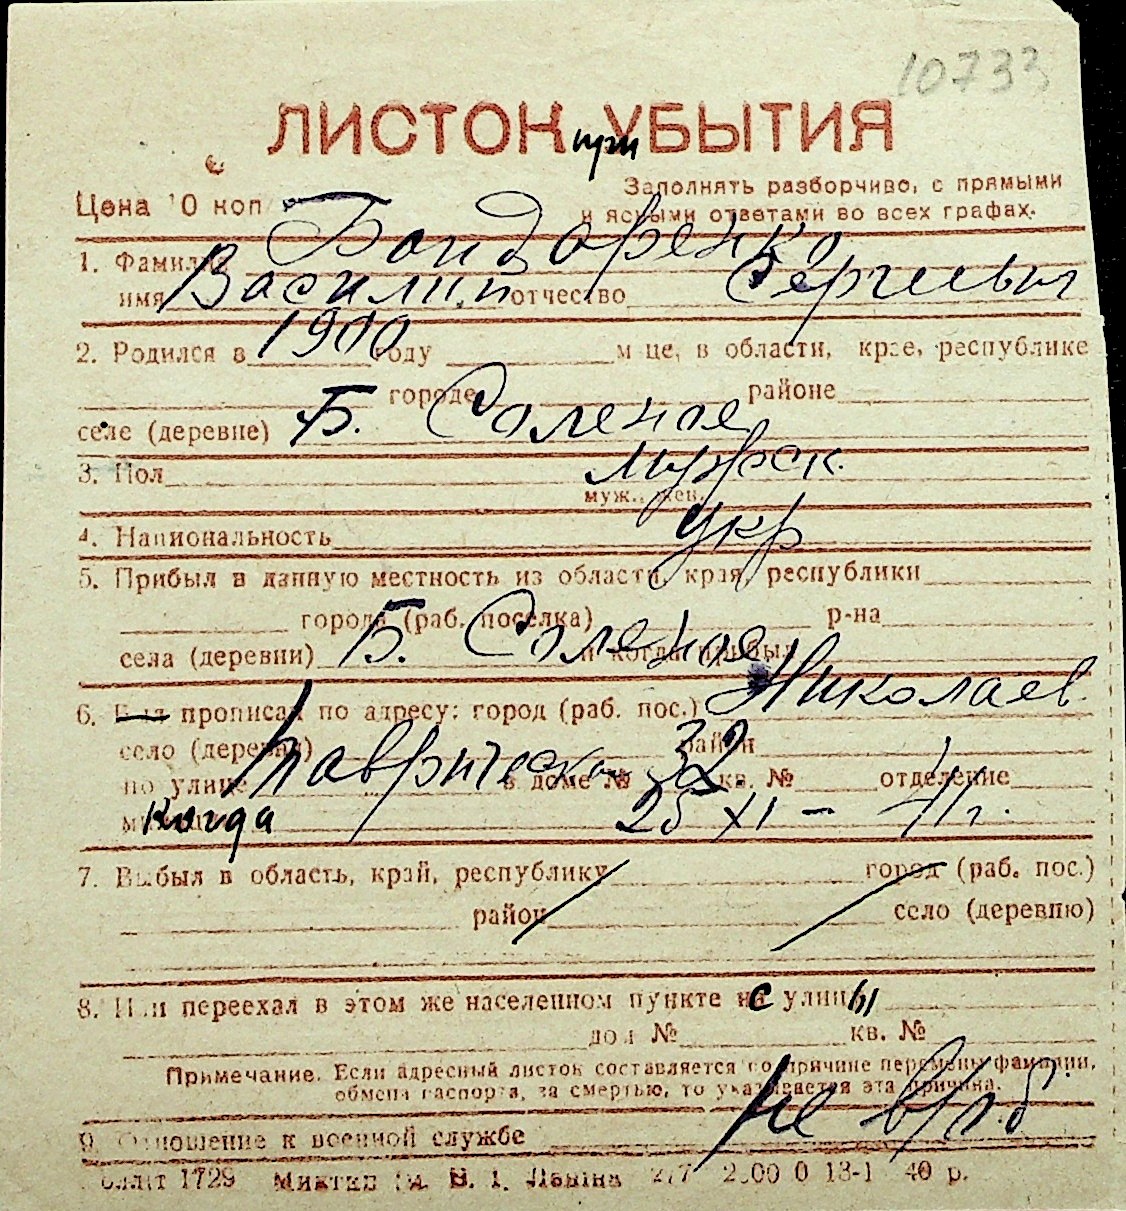 10733
ЛИСТОК при УБЫТИЯ
Цена 10 коп
Заполнять разборчиво, с прямыми
и ясными ответами во всех графах.
1. Фамилия Бондаренко
имя Василий отчество Сергиевич
2. Родился в 1900 году м-це, в области, крае, республике
городе районе
селе (деревне) Б. Соленое
3. Пол мужск.
муж., жен.
4. Национальность укр
5. Прибыл в данную местность из области, края, республики
города (раб. поселка) р-на
села (деревни) Б. Соленое и когда прибыл
6. Был прописан по адресу: город (раб. пос.) Николаев
село (деревня) район
по улице Таврическа в доме № 32 кв. № отделение
Когда 25 XI – 41 г.
7. Выбыл в область, край, республику город (раб. пос.)
район село (деревню)
8. Или переехал в этом же населенном пункте с улицы
дом № кв. №
Примечание. Если адресный листок составляется по причине перемены фамилии,
обмена паспорта, за смертью, то указывается эта причина.
9. Отношение к военной службе не в/об
1729 2.7 40 р.